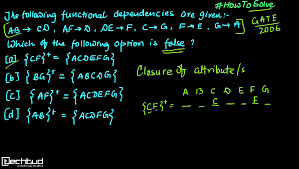 #HowToSolve
The following functional dependencies are given:-
AB → CD, AF → D, DE → F, C → G, F → E, G → A
GATE
2006
Which of the following option is false?
[a] {CF}⁺ = {ACDEFG}
[b] {BG}⁺ = {ABCDG}
[c] {AF}⁺ = {ACDEFG}
[d] {AB}⁺ = {ACDFG}
Closure of attribute/s
A B C D E F G
{CF}⁺ = _ _ C _ _ E _
Techtud